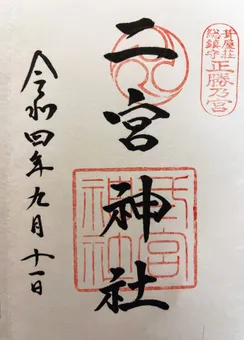 葺屋荘
総鎮守
正勝乃宮
二宮神社
宮
神社
令和四年九月十一日